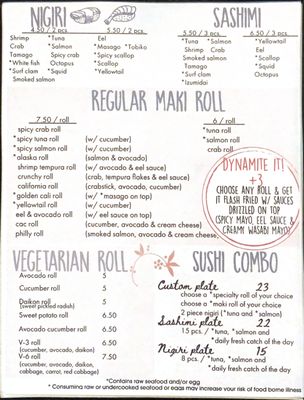 NIGIRI
SASHIMI
4.50 / 2 pcs.
5.50 / 2 pcs.
5.50 / 3 pcs.
6.50 / 3 pcs.
Shrimp *Tuna Eel
Crab *Salmon *Masago *Tobiko
Tamago Spicy crab *Spicy scallop
*White fish Octopus *Scallop
*Surf clam *Squid *Yellowtail
Smoked salmon
Shrimp *Tuna *Yellowtail
Crab *Salmon Eel
Tamago *Squid Octopus
*Surf clam
*Izumidai
Smoked salmon
REGULAR MAKI ROLL
7.50 / roll
6 / roll
spicy crab roll
*spicy tuna roll (w/ cucumber)
*spicy salmon roll (w/ cucumber)
*alaska roll (salmon & avocado)
shrimp tempura roll (w/ avocado & eel sauce)
crunchy roll (crab, tempura flakes & eel sauce)
california roll (crabstick, avocado, cucumber)
*golden cali roll (w/ *masago on top)
*yellowtail roll (w/ cucumber)
eel & avocado roll (w/ eel sauce on top)
cac roll (cucumber, avocado & cream cheese)
philly roll (smoked salmon, avocado & cream cheese)
*tuna roll
*salmon roll
crab roll
DYNAMITE IT!
+3
CHOOSE ANY ROLL & GET
IT FLASH FRIED W/ SAUCES
DRIZZLED ON TOP
(SPICY MAYO, EEL SAUCE &
CREAMY WASABI MAYO)
VEGETARIAN ROLL
Avocado roll 5
Cucumber roll 5
Daikon roll 5
(sweet pickled radish)
Sweet potato roll 6.50
Avocado cucumber roll 6.50
V-3 roll 6.50
(cucumber, avocado, daikon)
V-6 roll 7.50
(cucumber, avocado, daikon,
cabbage, carrot, red cabbage)
SUSHI COMBO
Custom plate 23
choose a *specialty roll of your choice
choose a *maki roll of your choice
2 piece nigiri (*tuna and *salmon)
Sashimi plate 22
15 pcs. / *tuna, *salmon and
*daily fresh catch of the day
Nigiri plate 15
8 pcs. / *tuna, *salmon and
*daily fresh catch of the day
*Contains raw seafood and/or egg
* Consuming raw or undercooked seafood or eggs may increase your risk of food borne illness